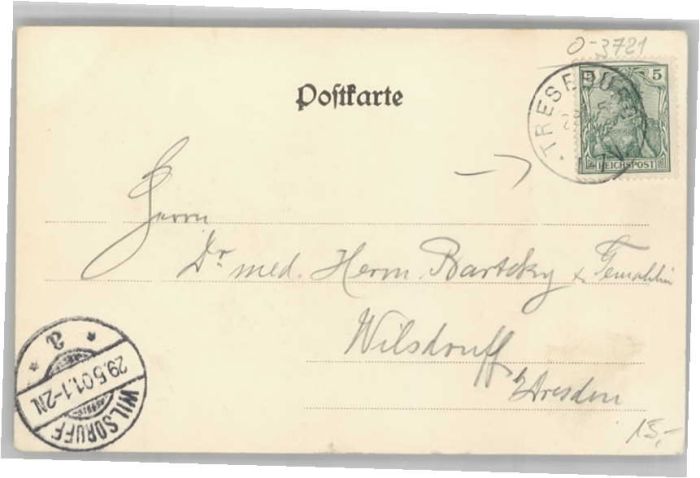 O-3721
Postkarte
5 5
REICHSPOST
TRESEBURG
Herrn
Dr. med. Herm. Bartcky & Gemahlin
Wilsdruff
b/Dresden
WILSDRUFF
29.5.01.1-2N.
a
15,-